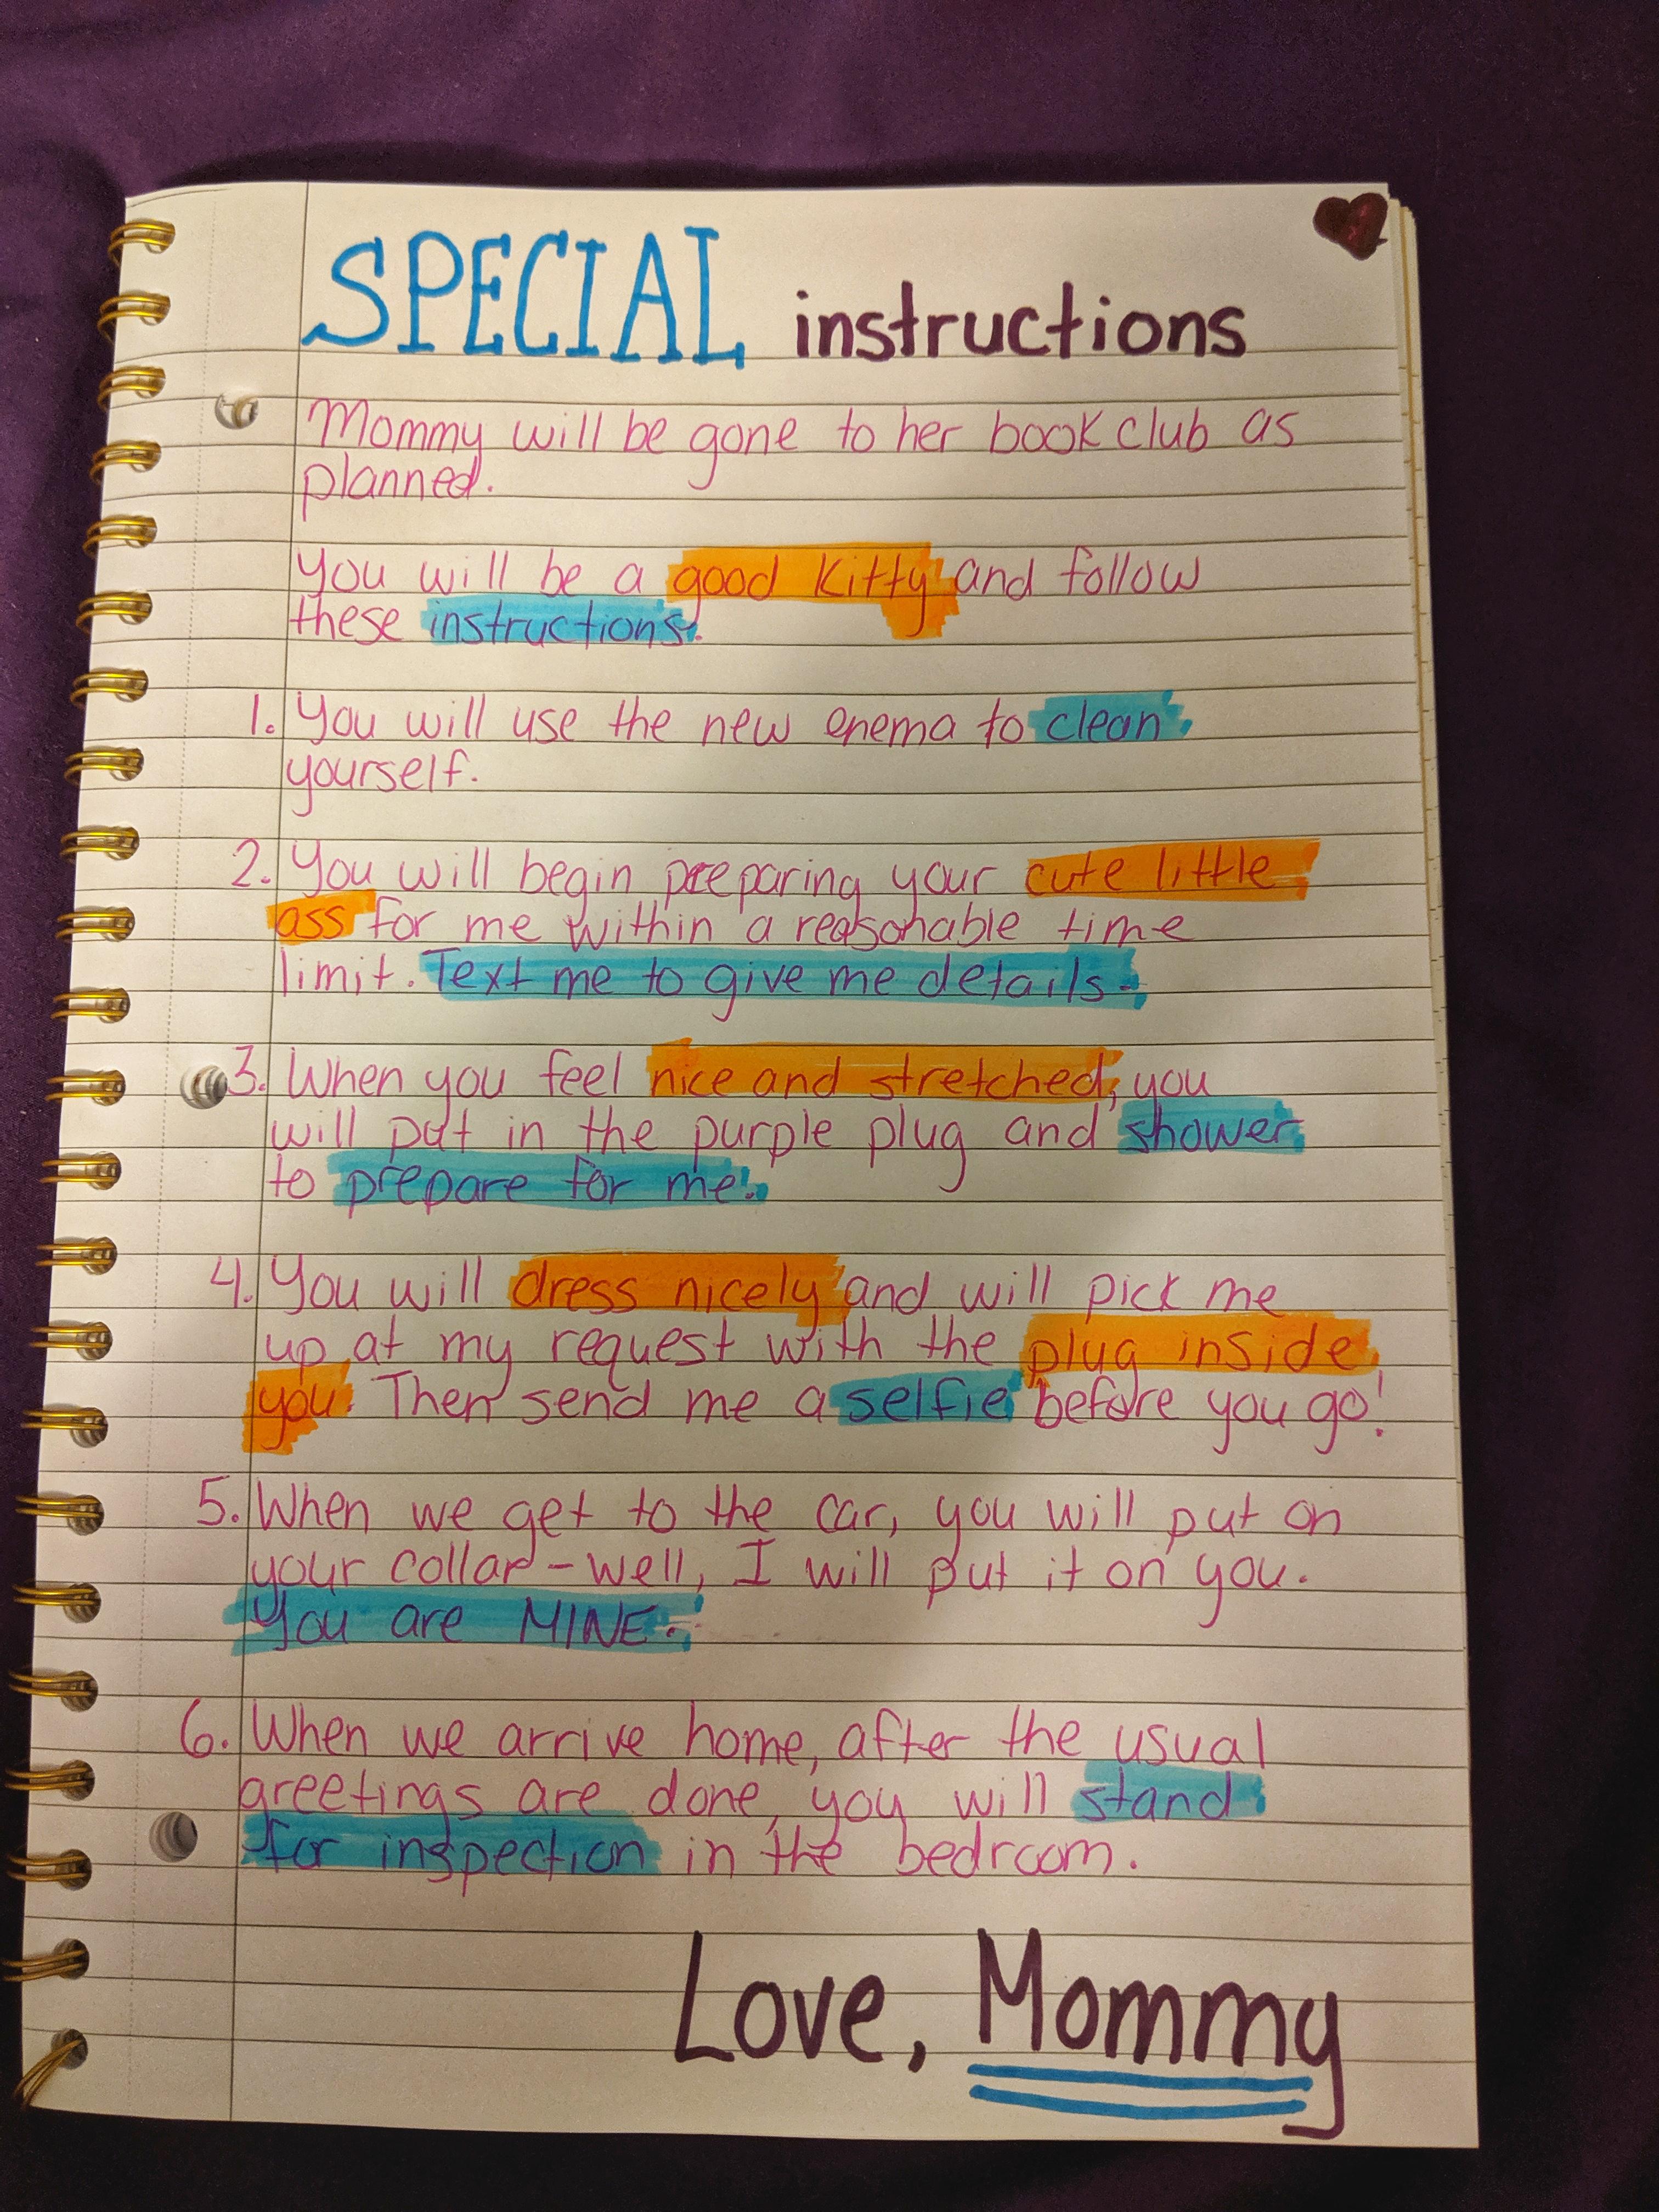 SPECIAL instructions
Mommy will be gone to her book club as
planned.
You will be a good kitty and follow
these instructions.
1. You will use the new enema to clean
yourself.
2. You will begin preparing your cute little
ass for me within a reasonable time
limit. Text me to give me details.
3. When you feel nice and stretched, you
will put in the purple plug and shower
to prepare for me.
4. You will dress nicely and will pick me
up at my request with the plug inside
you. Then send me a selfie before you go!
5. When we get to the car, you will put on
your collar - well, I will put it on you.
You are MINE.
6. When we arrive home, after the usual
greetings are done, you will stand
for inspection in the bedroom.
Love, Mommy